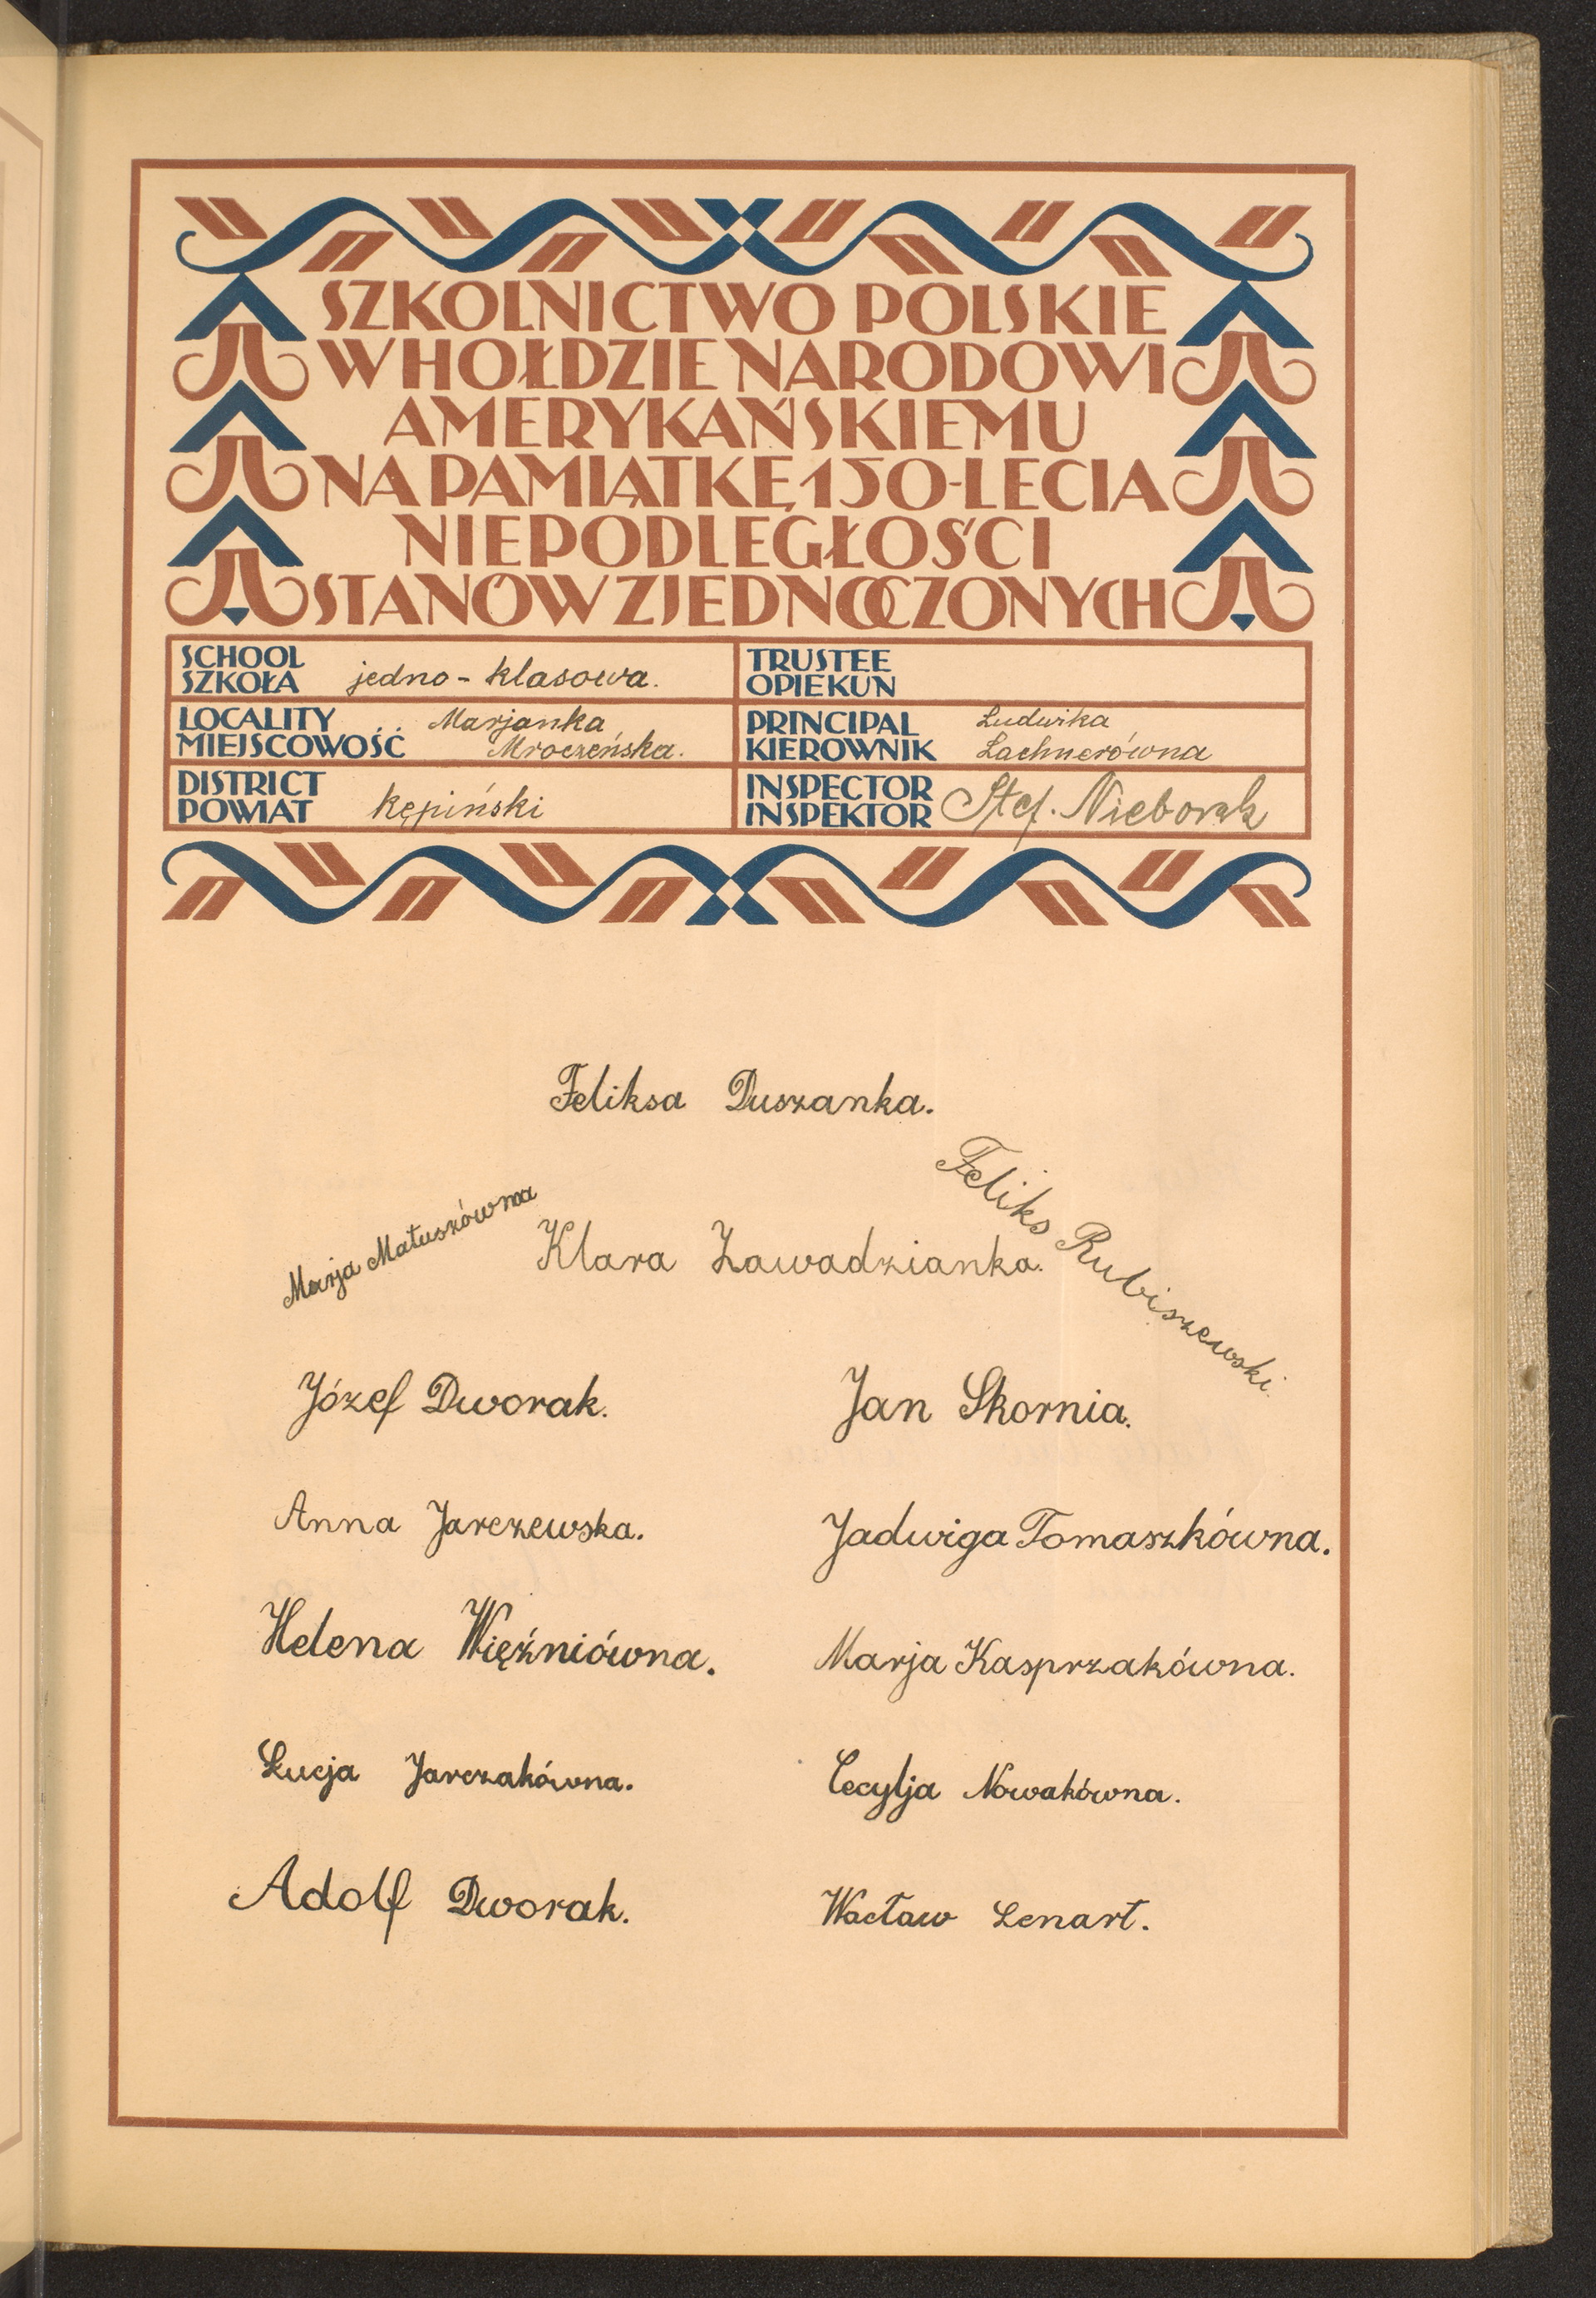 SZKOLNICTWO POLSKIE
W HOŁDZIE NARODOWI
AMERYKAŃSKIEMU
NA PAMIĄTKĘ 150-LECIA
NIEPODLEGŁOŚCI
STANÓW ZJEDNOCZONYCH
SCHOOL
SZKOŁA jedno-klasowa.
TRUSTEE
OPIEKUN
LOCALITY Marjanka
MIEJSCOWOŚĆ Mroczeńska.
PRINCIPAL Ludwika
KIEROWNIK Lachnerówna
DISTRICT
POWIAT Kępiński
INSPECTOR
INSPEKTOR Stef. Nieborak
Feliksa Duszanka.
Marja Matuszówna
Klara Zawadzianka.
Feliks Rubiszewski.
Józef Dworak.
Jan Skornia.
Anna Jarczewska.
Jadwiga Tomaszkówna.
Helena Więźniówna.
Marja Kasprzakówna.
Łucja Jarczakówna.
Cecylja Nowakówna.
Adolf Dworak.
Wacław Lenart.